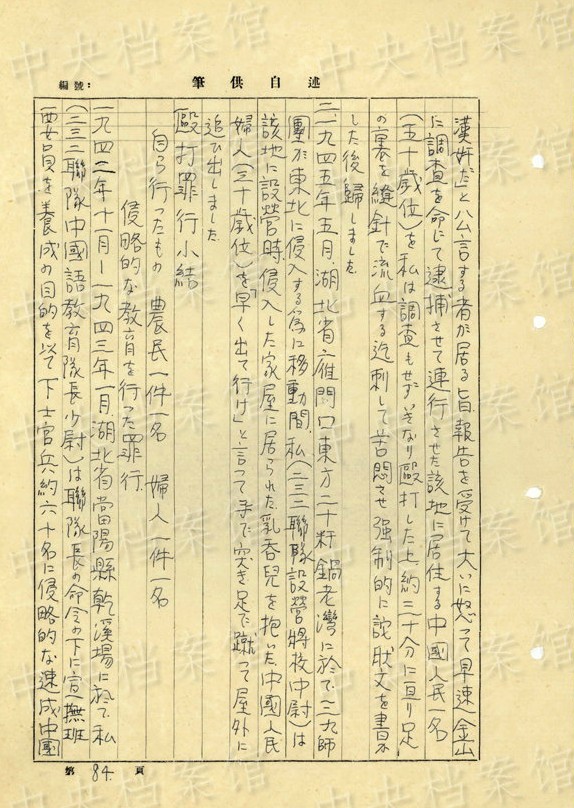 述自供筆
編號:
漢奸だ」と公言する者が居る旨、報告を受けて大いに怒って早速金山
に調査を命じて逮捕させて連行させた該地に居住する中國人民一名
(五十歳位)を私は調査もせずいきなり毆打した上約二十分に亘り足
の裏を縫針で流血する迄刺して苦悶させ强制的に詫狀文を書か
した後歸しました
二、一九四五年五月、湖北省雁門口東方二十粁鍋老灣に於て三九師
團が東北に侵入する爲に移動間、私(二三二聯隊設營將校中尉)は
該地に設營時、侵入した家屋に居られた乳吞兒を抱いた中國人民
婦人(三十歳位)を「早く出て行け」と言って手で突き足で蹴って屋外に
追ひ出しました
毆打罪行小結
自ら行ったもの 農民一件一名 婦人一件一名
侵略的な敎育を行った罪行
一九四二年十一月—一九四三年一月、湖北省當陽縣乾溪場に於て、私
(二三二聯隊中國語敎育隊長少尉)は聯隊長の命令の下に宣撫班
要員を養成の目的を以て下士官兵約六十名に侵略的な速成中國
第 84 頁
中央档案馆